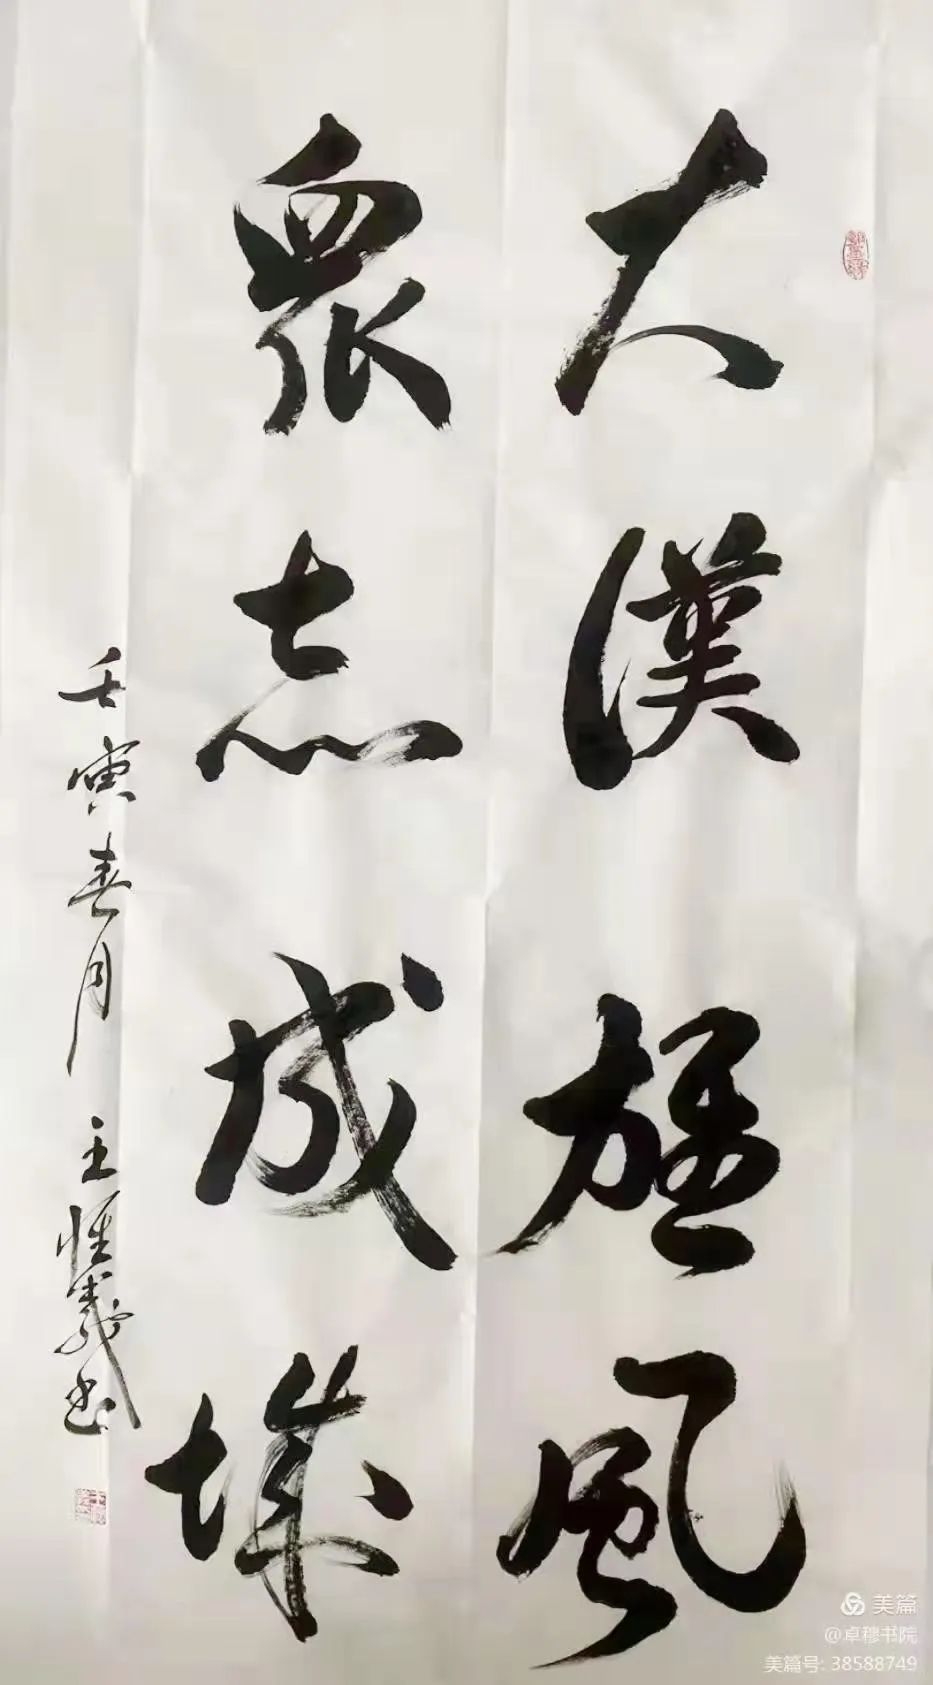 大漢雄風
眾志成城
壬寅春月 王恒義书
美篇
@卓穆书院
美篇号: 38588749